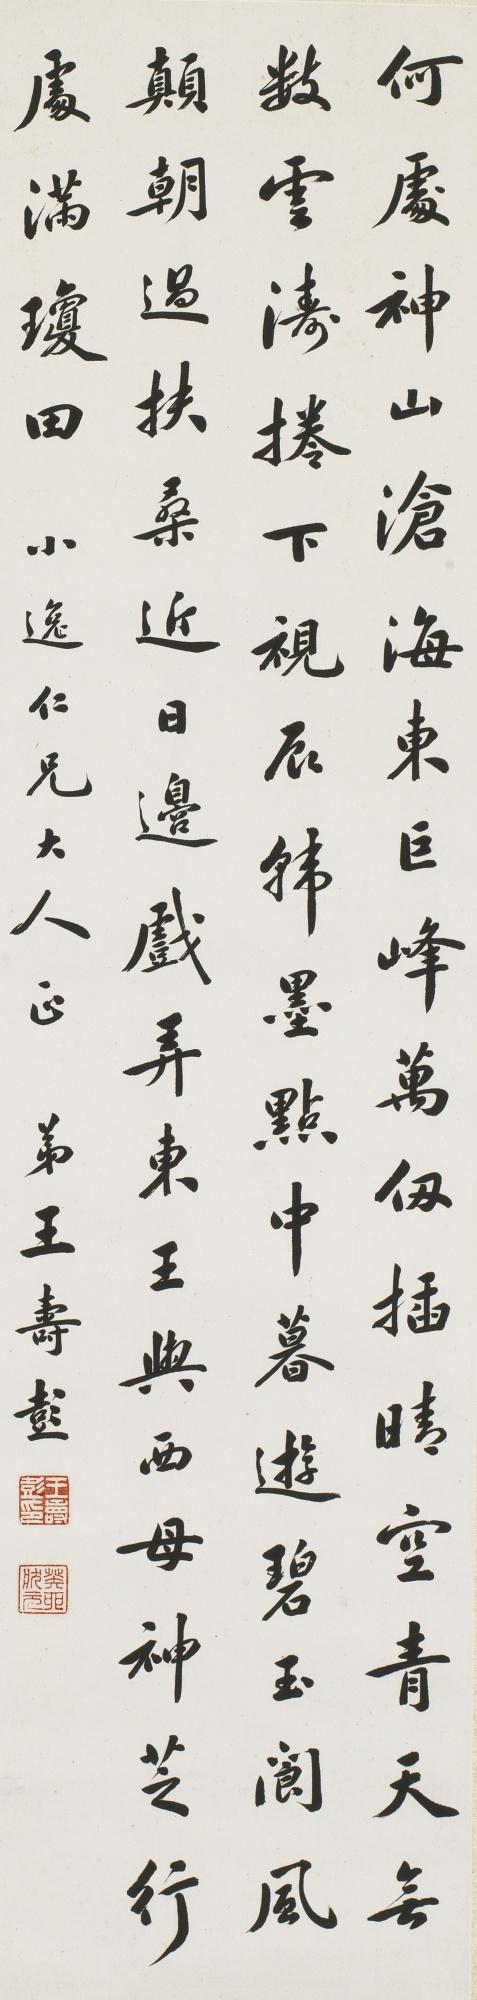 何處神山滄海東巨峰萬仭插晴空青天無
數雲濤捲下視辰韓墨點中暮遊碧玉閬風
顛朝過扶桑近日邊戲弄東王與西母神芝行
處滿瓊田 小逸仁兄大人正 弟王壽彭
王壽彭印
癸卯狀元